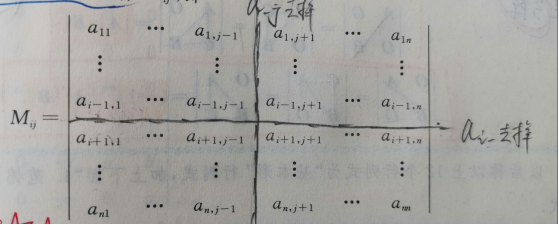 a_{-j}去掉
a_{11} ⋯ a_{1,j-1} a_{1,j+1} ⋯ a_{1n}
⋮ ⋮ ⋮ ⋮
a_{i-1,1} ⋯ a_{i-1,j-1} a_{i-1,j+1} ⋯ a_{i-1,n}
M_{ij} =
a_{i+1,1} ⋯ a_{i+1,j-1} a_{i+1,j+1} ⋯ a_{i+1,n}
a_{i-}去掉
⋮ ⋮ ⋮ ⋮
a_{n1} ⋯ a_{n,j-1} a_{n,j+1} ⋯ a_{nn}